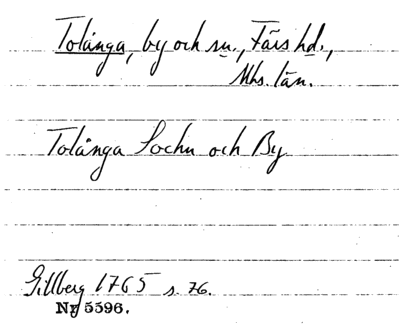 Tolånga, by och sn., Färs hd.,
Mhs. län.
Tolånga Sochn och By
Gillberg 1765 s. 76.
Ny 5596.